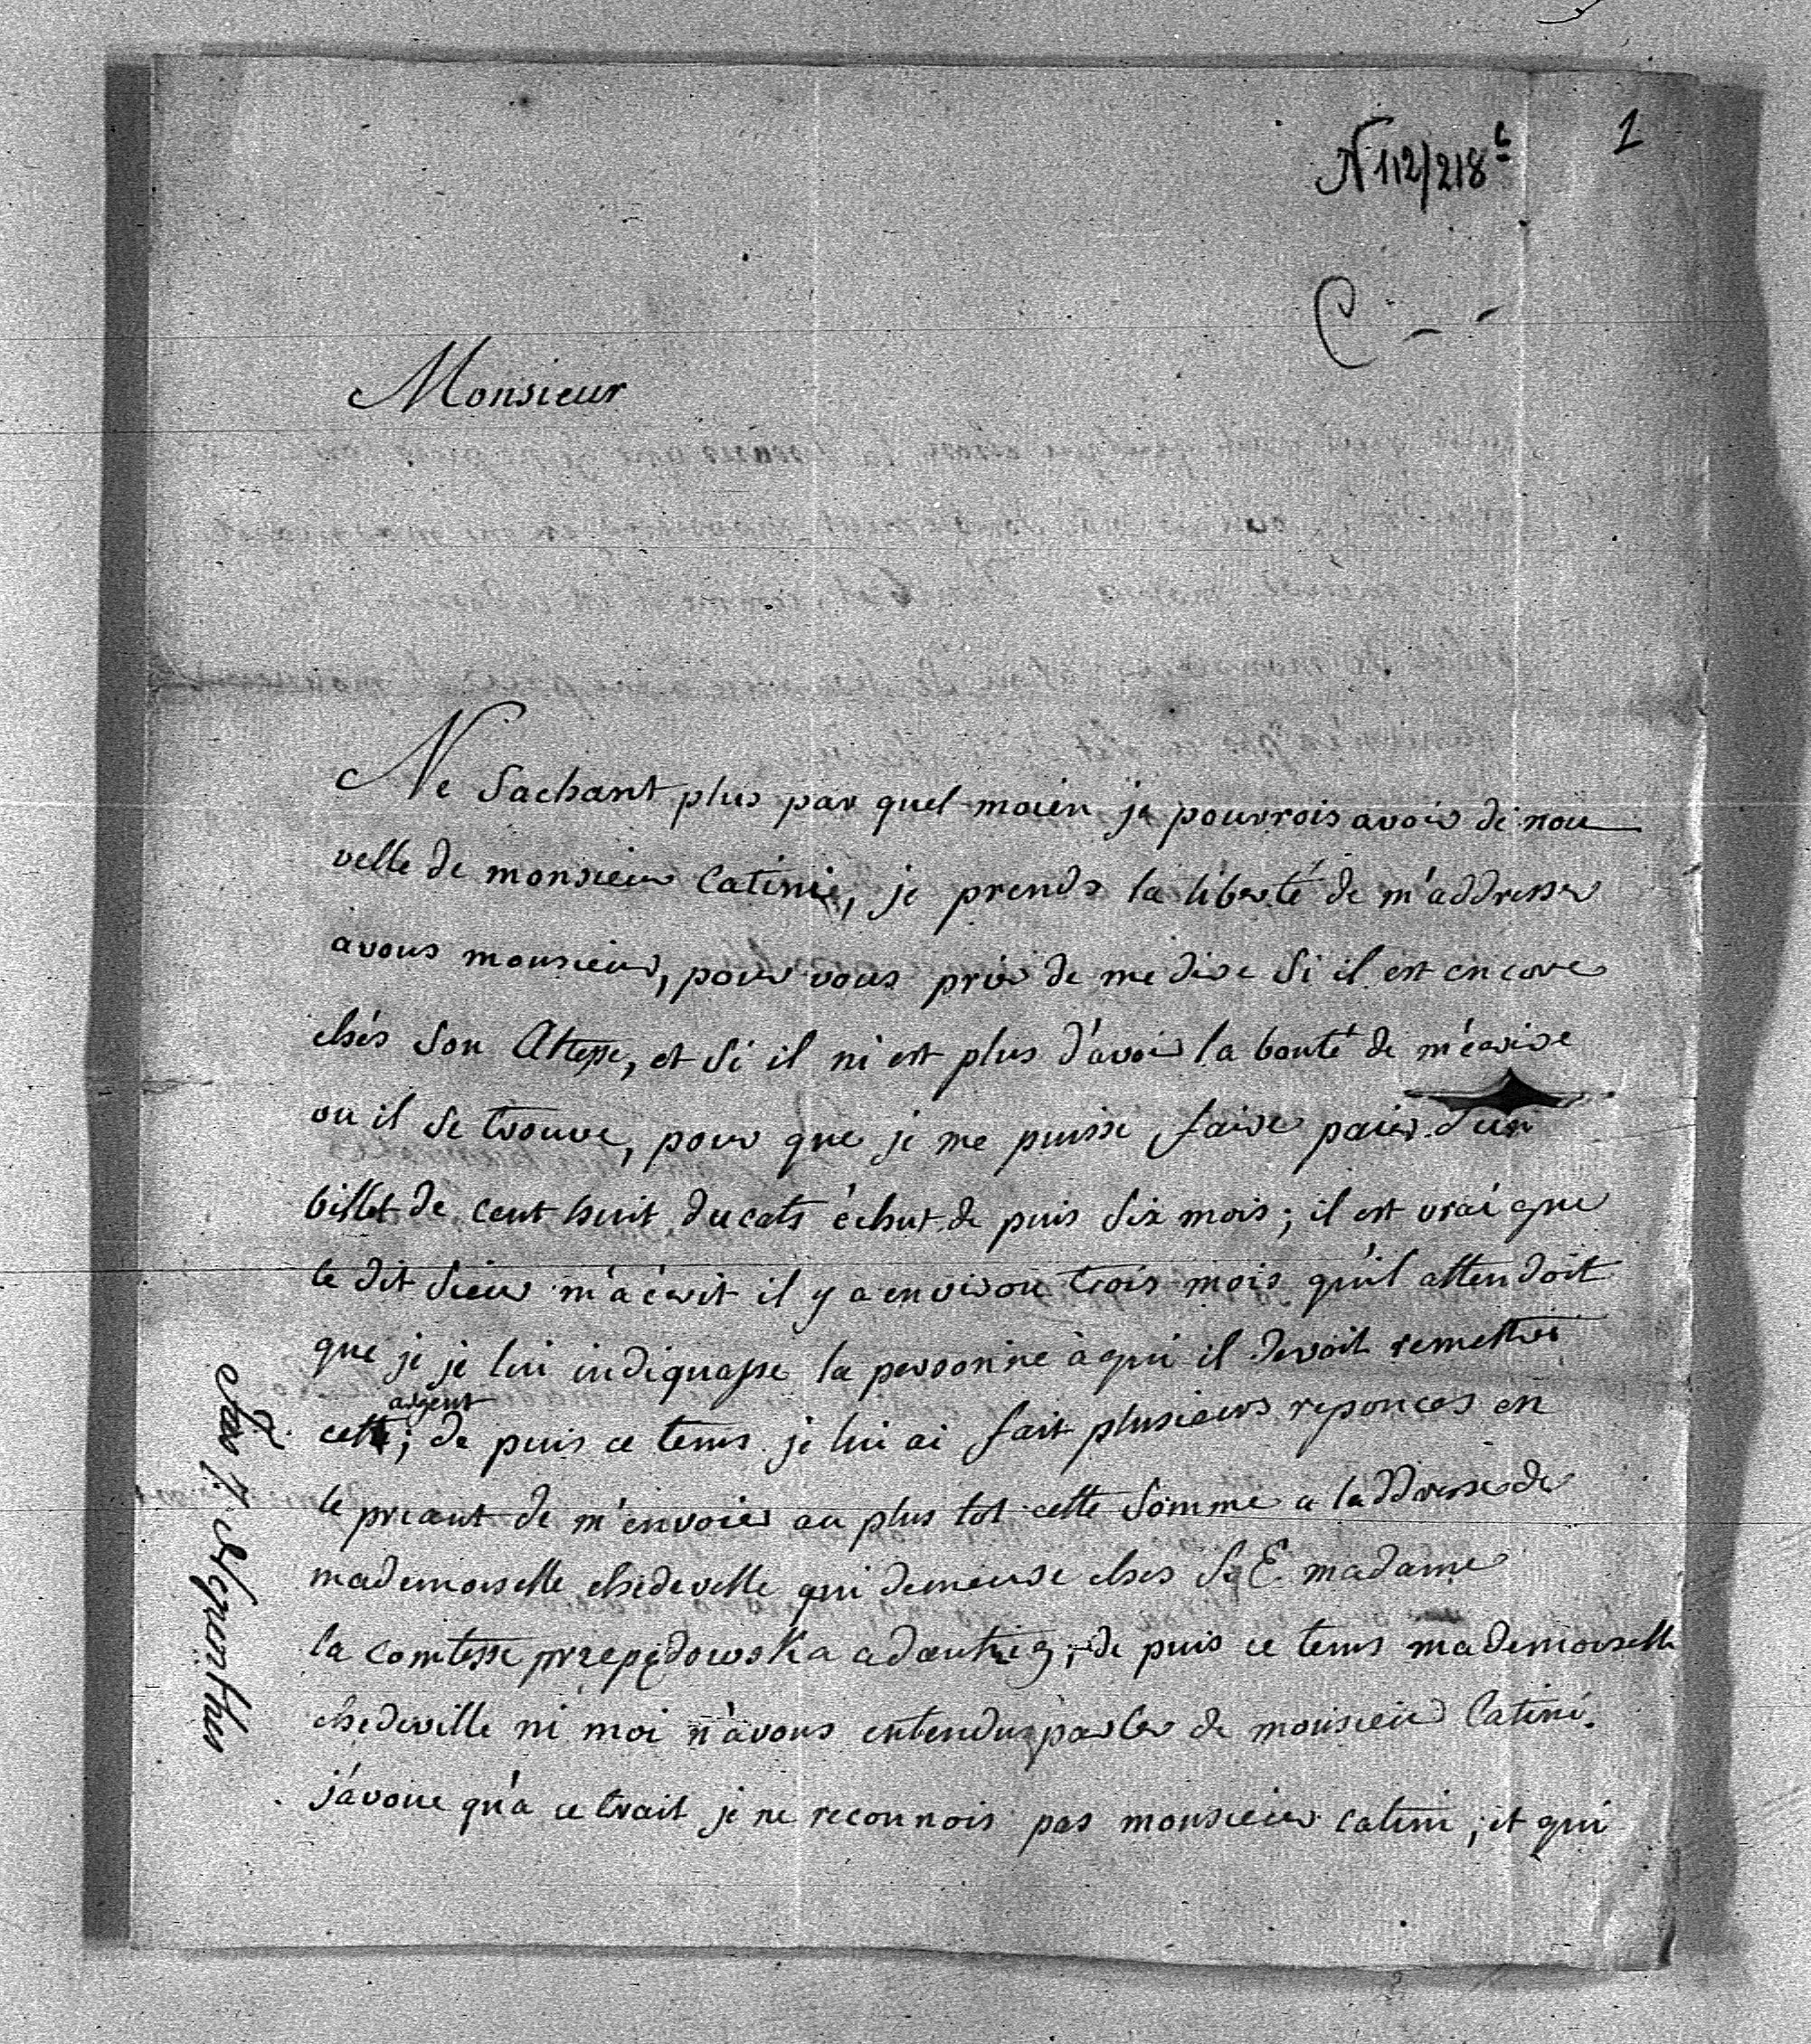 1
N 112/218
C - -
Monsieur
Ne Sachant plus par quel moien je pourrois avoir de nou
velle de monsieur Catini, je prends la liberté de m'addresser
avous monsieur, pour vous prier de me dire Si il est encore
chés Son Altesse, et Si il ni est plus d'avoir la bonté de m'écrire
ou il Se trouve, pour que je me puisse faire paier d'un
billet de cent huit ducats échut de puis Six mois; il est vrai que
le dit Sieur m'a écrit il y a environ trois mois qu'il attendoit
que je je lui indiquasse la personne à qui il devoit remettre
argent
cett; de puis ce tems je lui ai fait plusieurs reponces en
le priant de m'envoier au plus tot cette Somme a laddresse de
mademoiselle chedeville qui demeure ches S. E. madame
la comtesse przependowska a dantzig; de puis ce tems mademoiselle
chedeville ni moi n'avons entendu parler de monsieur Catini.
j'avoue qu'a ce trait je ne reconnois pas monsieur catini; et qui